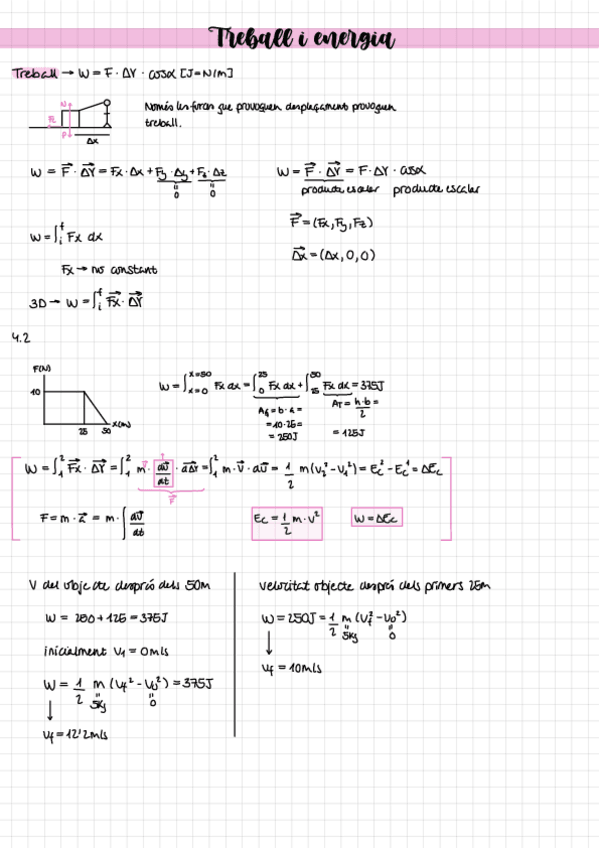 Treball i energia
Treball → W = F · Δr · cosα [J = N/m]
N
Fc
P
Δx
Només les forces que provoquen desplaçament provoquen
treball.
W = F⃗ · Δr⃗ = Fx · Δx + Fy · Δy + Fz · Δz
0 0
W = F⃗ · Δr⃗ = F · Δr · cosα
producte escalar producte escalar
F⃗ = (Fx, Fy, Fz)
Δx⃗ = (Δx, 0, 0)
W = ∫ᵢᶠ Fx dx
Fx → no constant
3D → W = ∫ᵢᶠ Fx⃗ · Δr⃗
4.2
F(N)
10
25 50 x(m)
W = ∫ₓ₌₀ˣ⁼⁵⁰ Fx dx = ∫₀²⁵ Fx dx + ∫₂₅⁵⁰ Fx dx = 375J
A₁ = b · a =
= 10 · 25 =
= 250J
AT = h · b / 2 =
= 125J
W = ∫₁² Fx⃗ · Δr⃗ = ∫₁² m · dv⃗/dt · dΔr⃗ = ∫₁² m · v⃗ · dv⃗ = 1/2 m (v₂² - v₁²) = Ec² - Ec¹ = ΔEc
F⃗
F = m · a⃗ = m · ∫ dv⃗/dt
Ec = 1/2 m · v²
W = ΔEc
V del objecte després dels 50m
W = 250 + 125 = 375J
inicialment V₁ = 0m/s
W = 1/2 m (Vf² - V₀²) = 375J
5kg 0
↓
Vf = 12'2m/s
velocitat objecte després dels primers 25m
W = 250J = 1/2 m (Vf² - V₀²)
5kg 0
↓
Vf = 10m/s